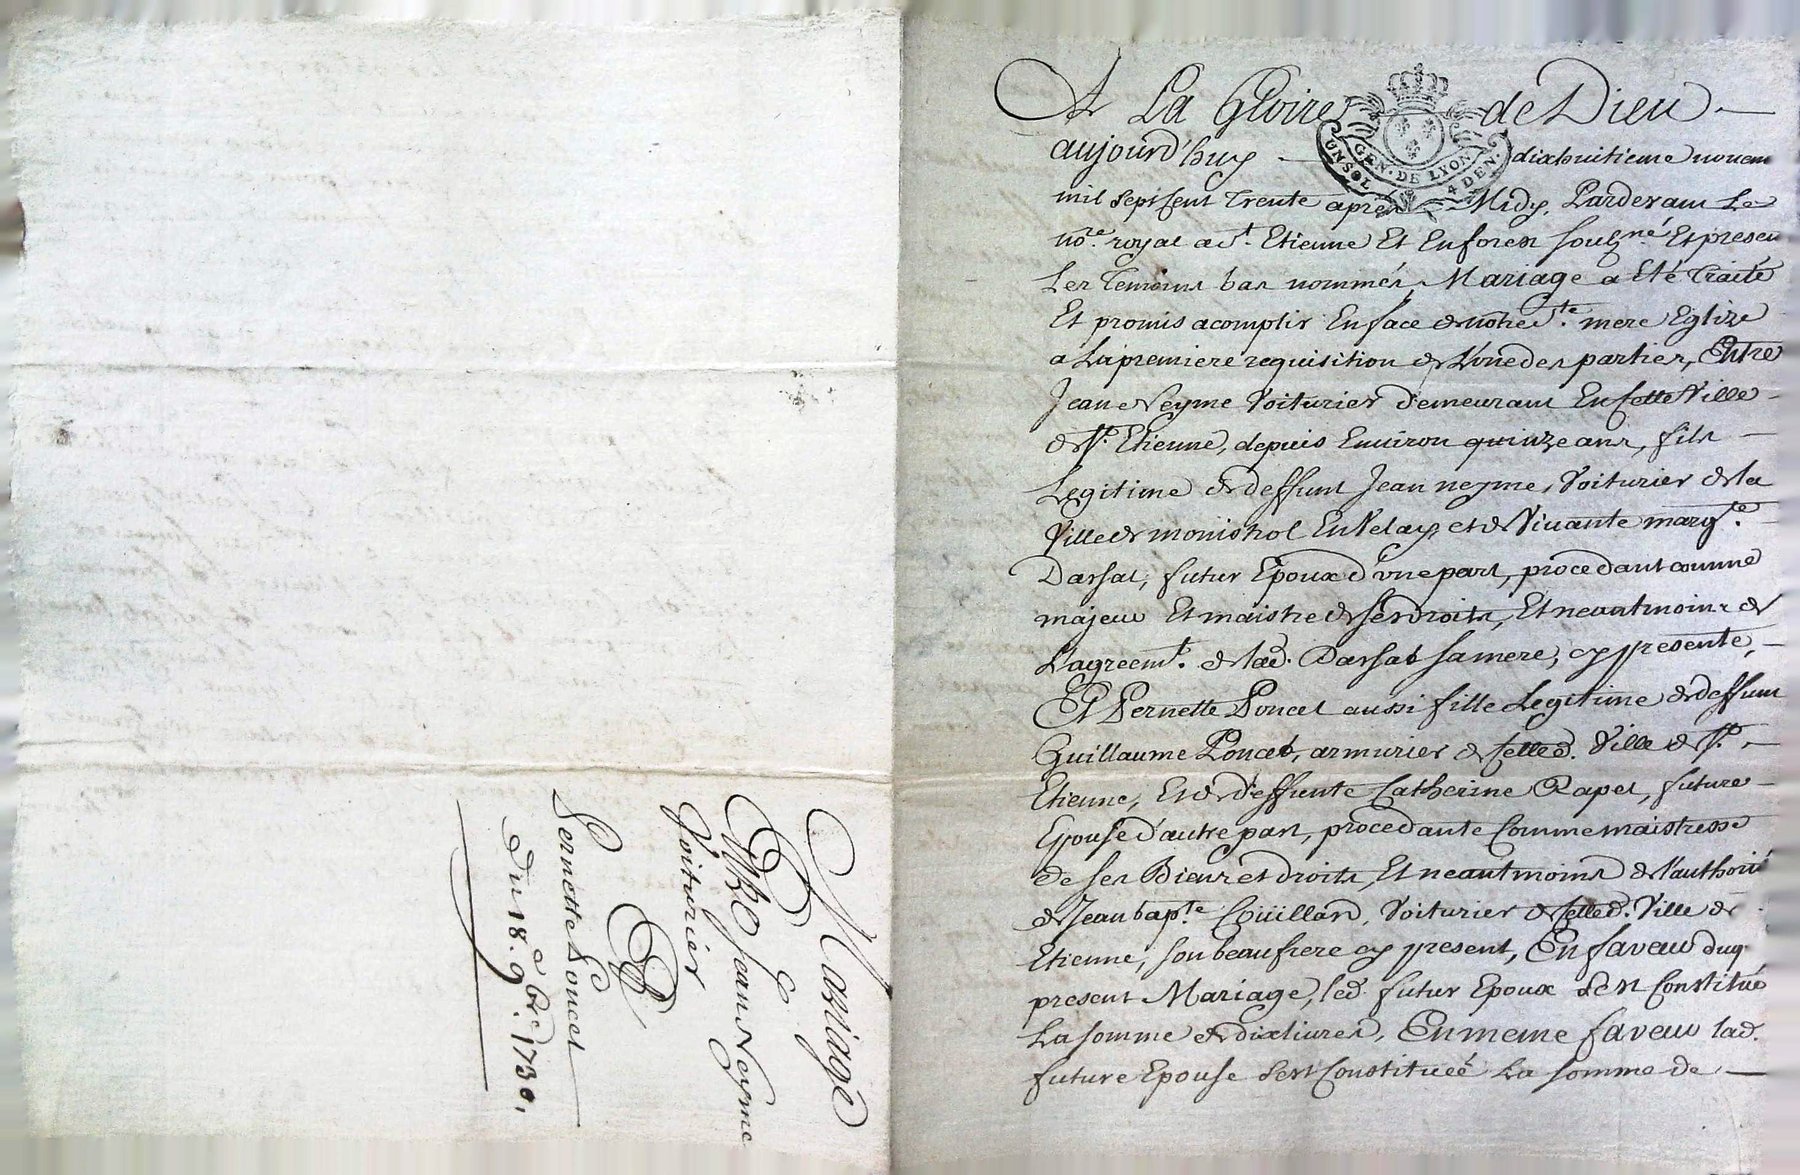 Mariage
Entre Jean Neyme
Voiturier
Et
Pernette Poncet
Du 18.e 9.bre 1730.
A La Gloire de Dieu
GEN. DE LYON
UN SOL 4 DEN.
aujourd'huy dixhuitieme novem
mil sept cent trente aprés Midy, Pardevant Le
no.re royal a S.t Etienne Et En forest sousg.né Et presen
Les Temoins bas nommés, Mariage a Eté Traité
Et promis acomplir En face de notre S.te mere Eglize
a La premiere requisition de L'une des parties, Entre
Jean Neyme Voiturier demeurant En cette Ville
de S.t Etienne, depuis Environ quinze ans, fils
Legitime de deffunt Jean neyme, Voiturier de la
Ville de monistrol En Velay, et de Vivante marg.te
Darsac, futur Epoux d'une part, procedant comme
majeur Et maistre de ses droits, Et neantmoins de
L'agreem.t de lad. Darsac sa mere, cy presente,
Et Pernette Poncet aussi fille Legitime de deffunt
Guillaume Poncet, armurier de cetted. Ville de S.t
Etienne, Et de deffunte Catherine Rapet, future
Epouse d'autre part, procedante Comme maistresse
de ses Biens et droits, Et neantmoins de L'authori
de Jean bap.te Coüillard, Voiturier de cetted. Ville de
Etienne, son beaufrere cy present, En faveur duq
present Mariage, led. futur Epoux s'est Constitué
La somme de dix livres, En meme faveur lad.
future Epouse s'est Constituéé La somme de